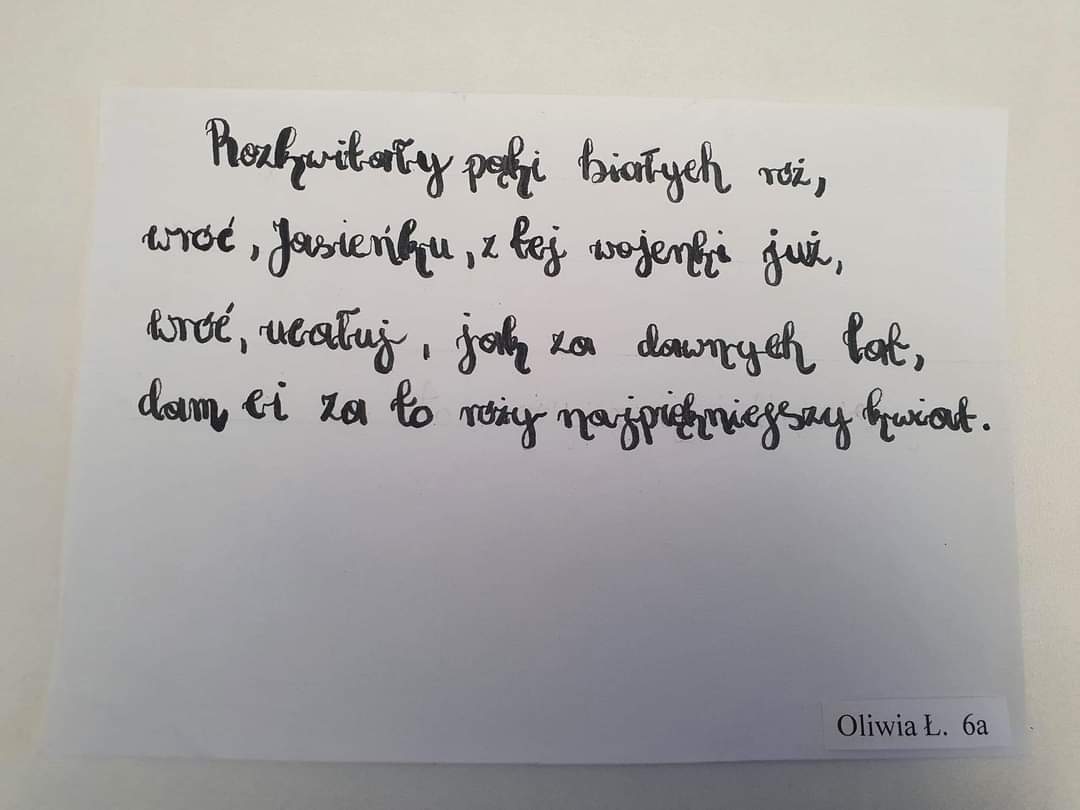 Rozkwitały pąki białych róż,
wróć, Jasieńku, z tej wojenki już,
wróć, ucałuj, jak za dawnych lat,
dam ci za to róży najpiękniejszy kwiat.
Oliwia Ł. 6a